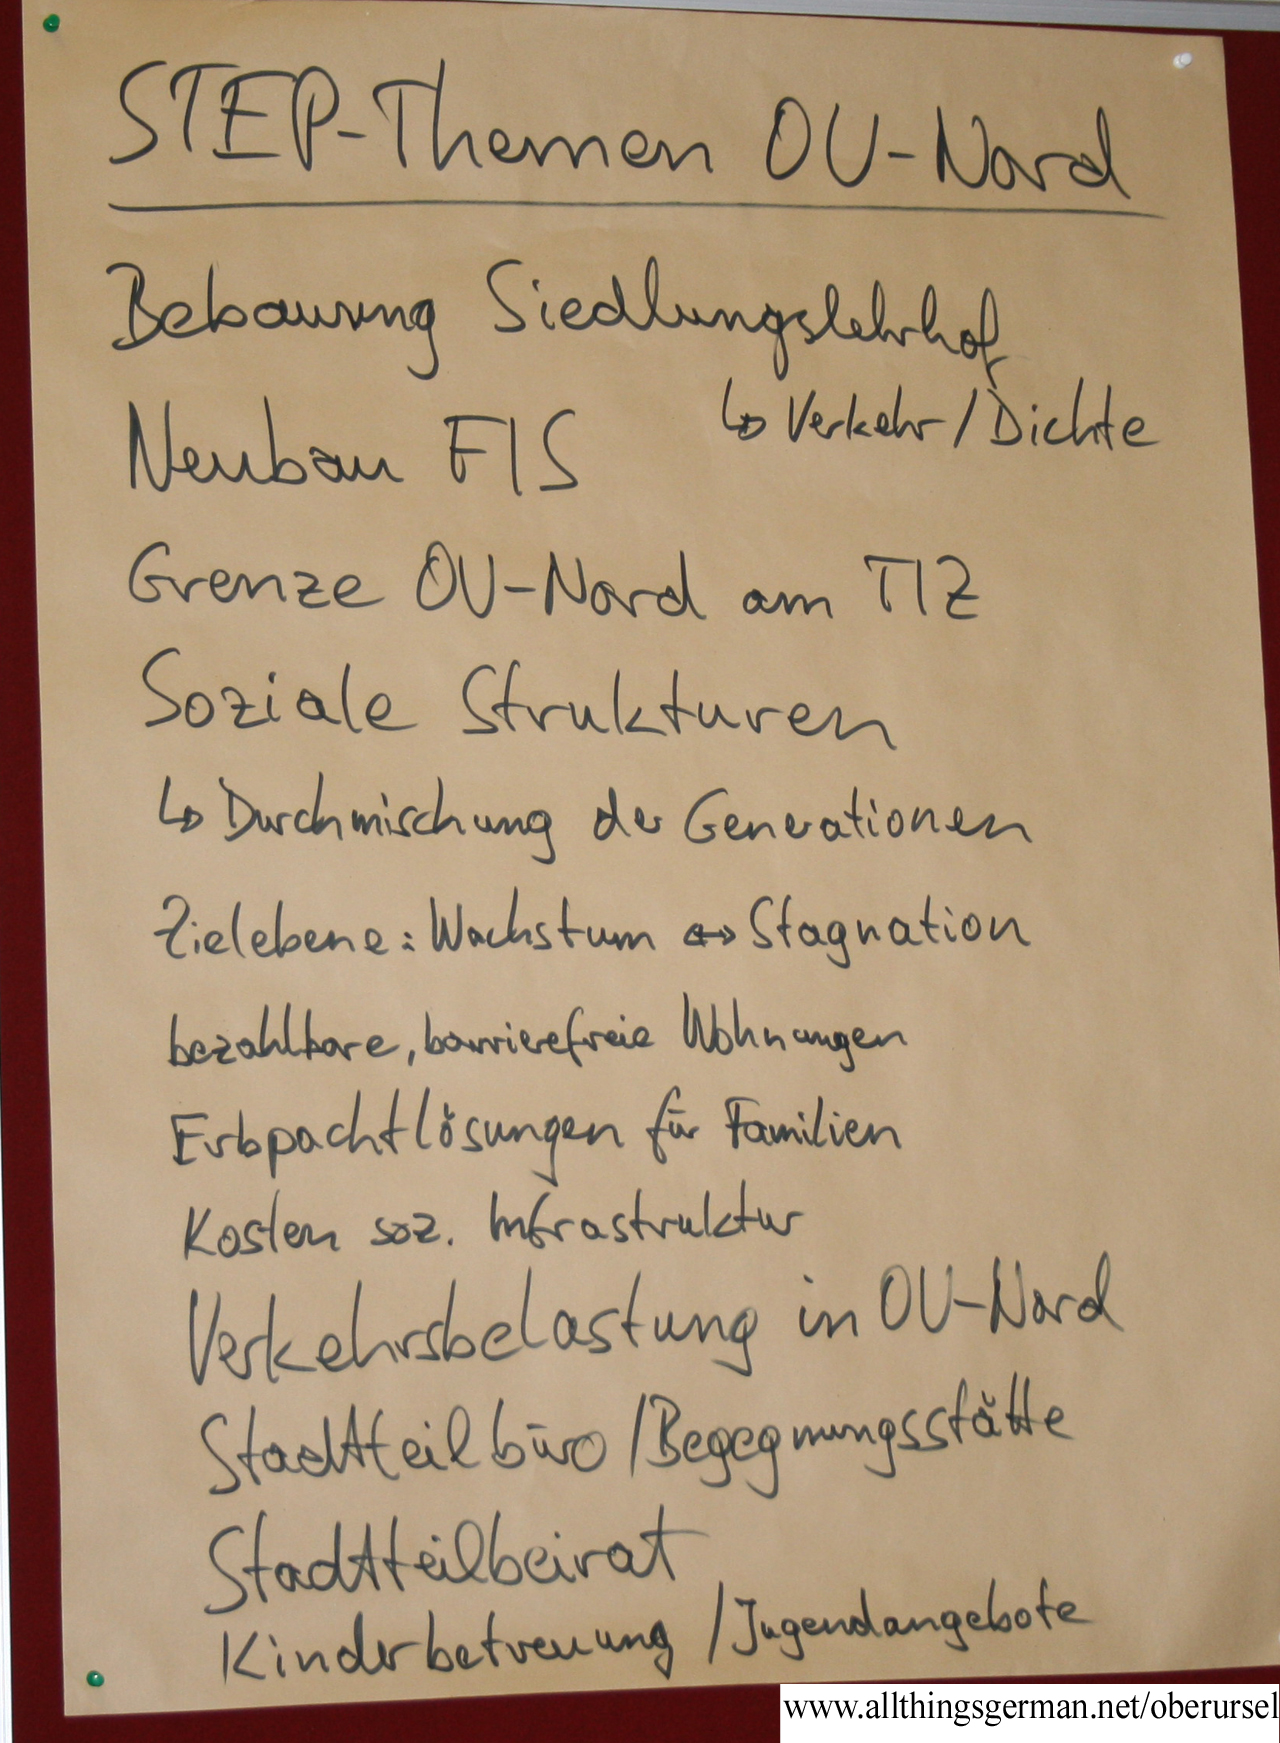 STEP-Themen OU-Nord
Bebauung Siedlungslehrhof
↳ Verkehr/Dichte
Neubau FIS
Grenze OU-Nord am TIZ
Soziale Strukturen
↳ Durchmischung der Generationen
Zielebene: Wachstum ↔ Stagnation
bezahlbare, barrierefreie Wohnungen
Erbpachtlösungen für Familien
Kosten soz. Infrastruktur
Verkehrsbelastung in OU-Nord
Stadtteilbüro/Begegnungsstätte
Stadtteilbeirat
Kinderbetreuung /Jugendangebote
www.allthingsgerman.net/oberursel